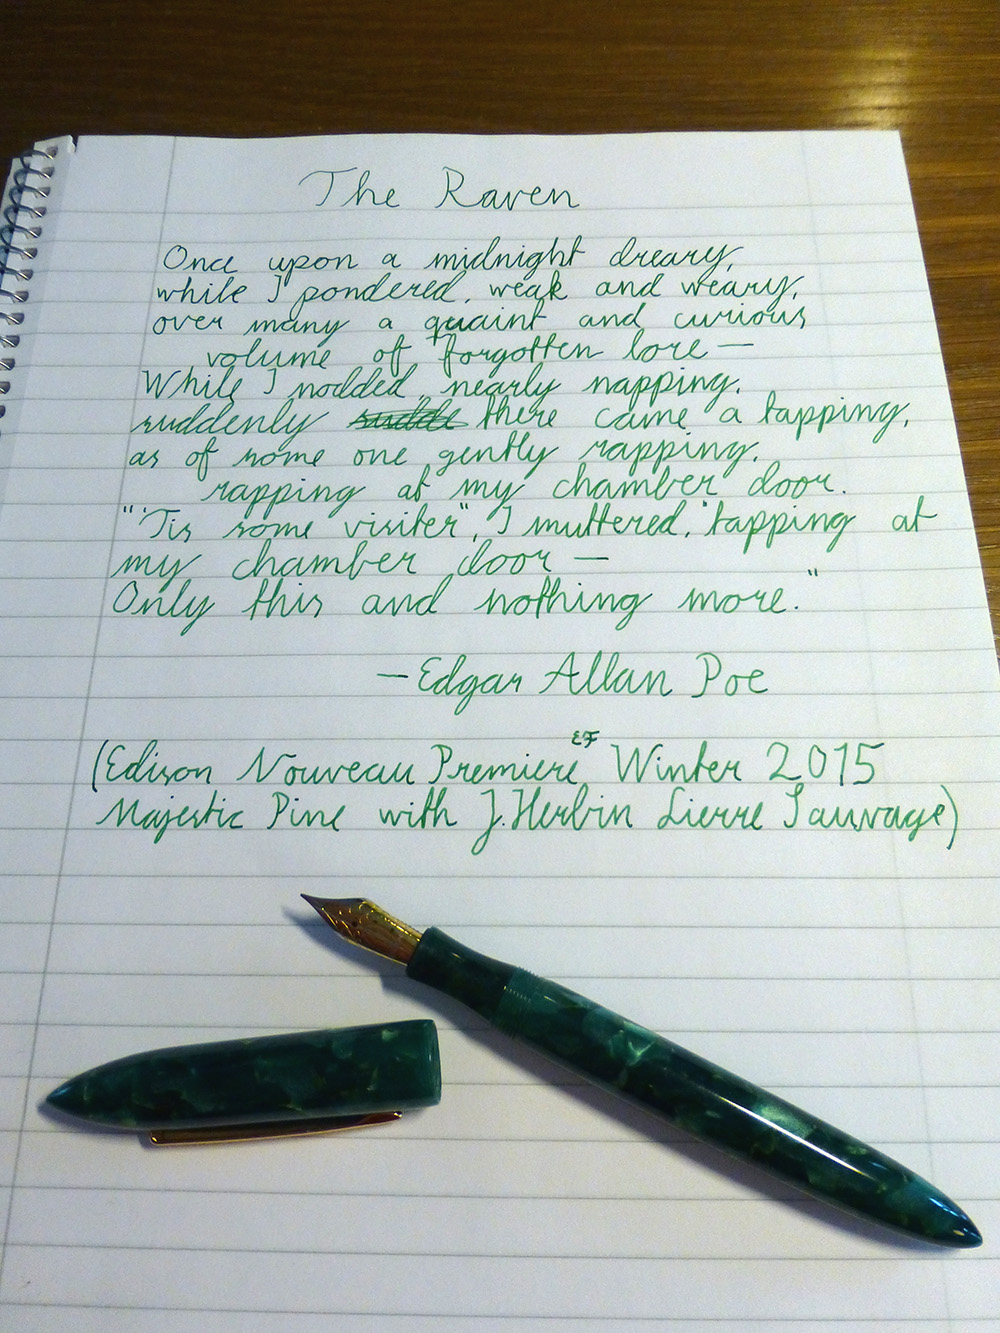 The Raven
Once upon a midnight dreary,
while I pondered, weak and weary,
over many a quaint and curious
volume of forgotten lore —
While I nodded nearly napping,
suddenly sudde there came a tapping,
as of some one gently rapping,
rapping at my chamber door.
"'Tis some visiter", I muttered, "tapping at
my chamber door —
Only this and nothing more."
—Edgar Allan Poe
(Edison Nouveau Premiere EF Winter 2015
Majestic Pine with J. Herbin Lierre Sauvage)